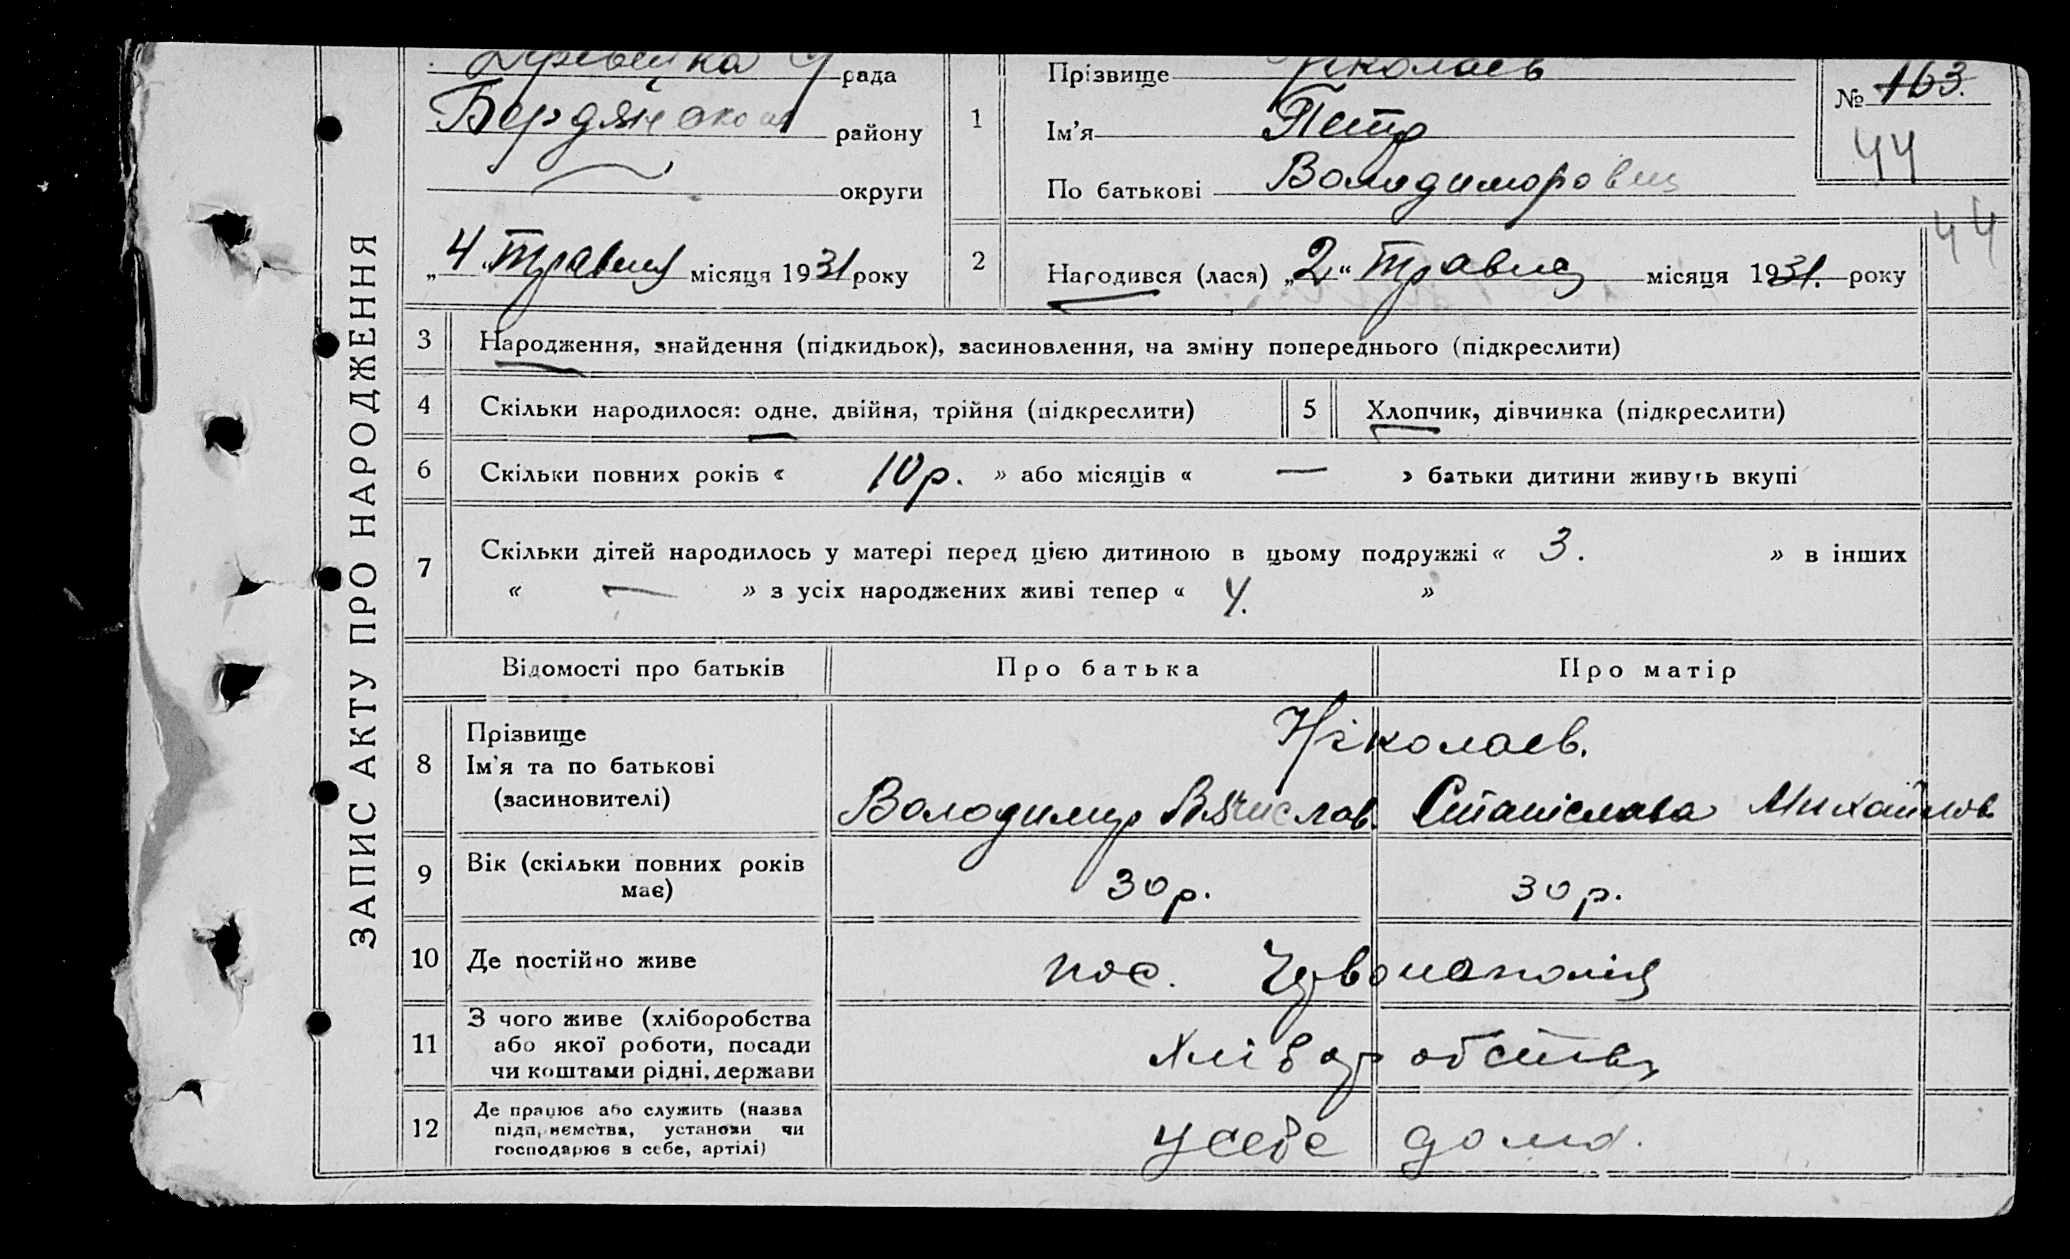 ЗАПИС АКТУ ПРО НАРОДЖЕННЯ
рада
Бердянского району
округи
„4 Травня місяця 1931 року
1
Прізвище Ніколаєв
Ім'я Петр
По батькові Володиморович
№ 163.
44
44
2
Народився (лася) „2“ Травня місяця 1931. року
3 Народження, знайдення (підкидьок), засиновлення, на зміну попереднього (підкреслити)
4 Скільки народилося: одне, двійня, трійня (підкреслити)
5 Хлопчик, дівчинка (підкреслити)
6 Скільки повних років « 10 р. » або місяців « — » батьки дитини живуть вкупі
7 Скільки дітей народилось у матері перед цією дитиною в цьому подружжі « 3. » в інших
« — » з усіх народжених живі тепер « 4. »
Відомості про батьків Про батька Про матір
8 Прізвище
Ім'я та по батькові
(засиновителі)
Ніколаєв.
Володимир Вячислав. Станіслава Михайлов
9 Вік (скільки повних років
має)
30 р. 30 р.
10 Де постійно живе
пос. Червонополія
11 З чого живе (хліборобства
або якої роботи, посади
чи коштами рідні, держави
хліборобства
12 Де працює або служить (назва
підприємства, установи чи
господарює в себе, артілі)
у себе дома.